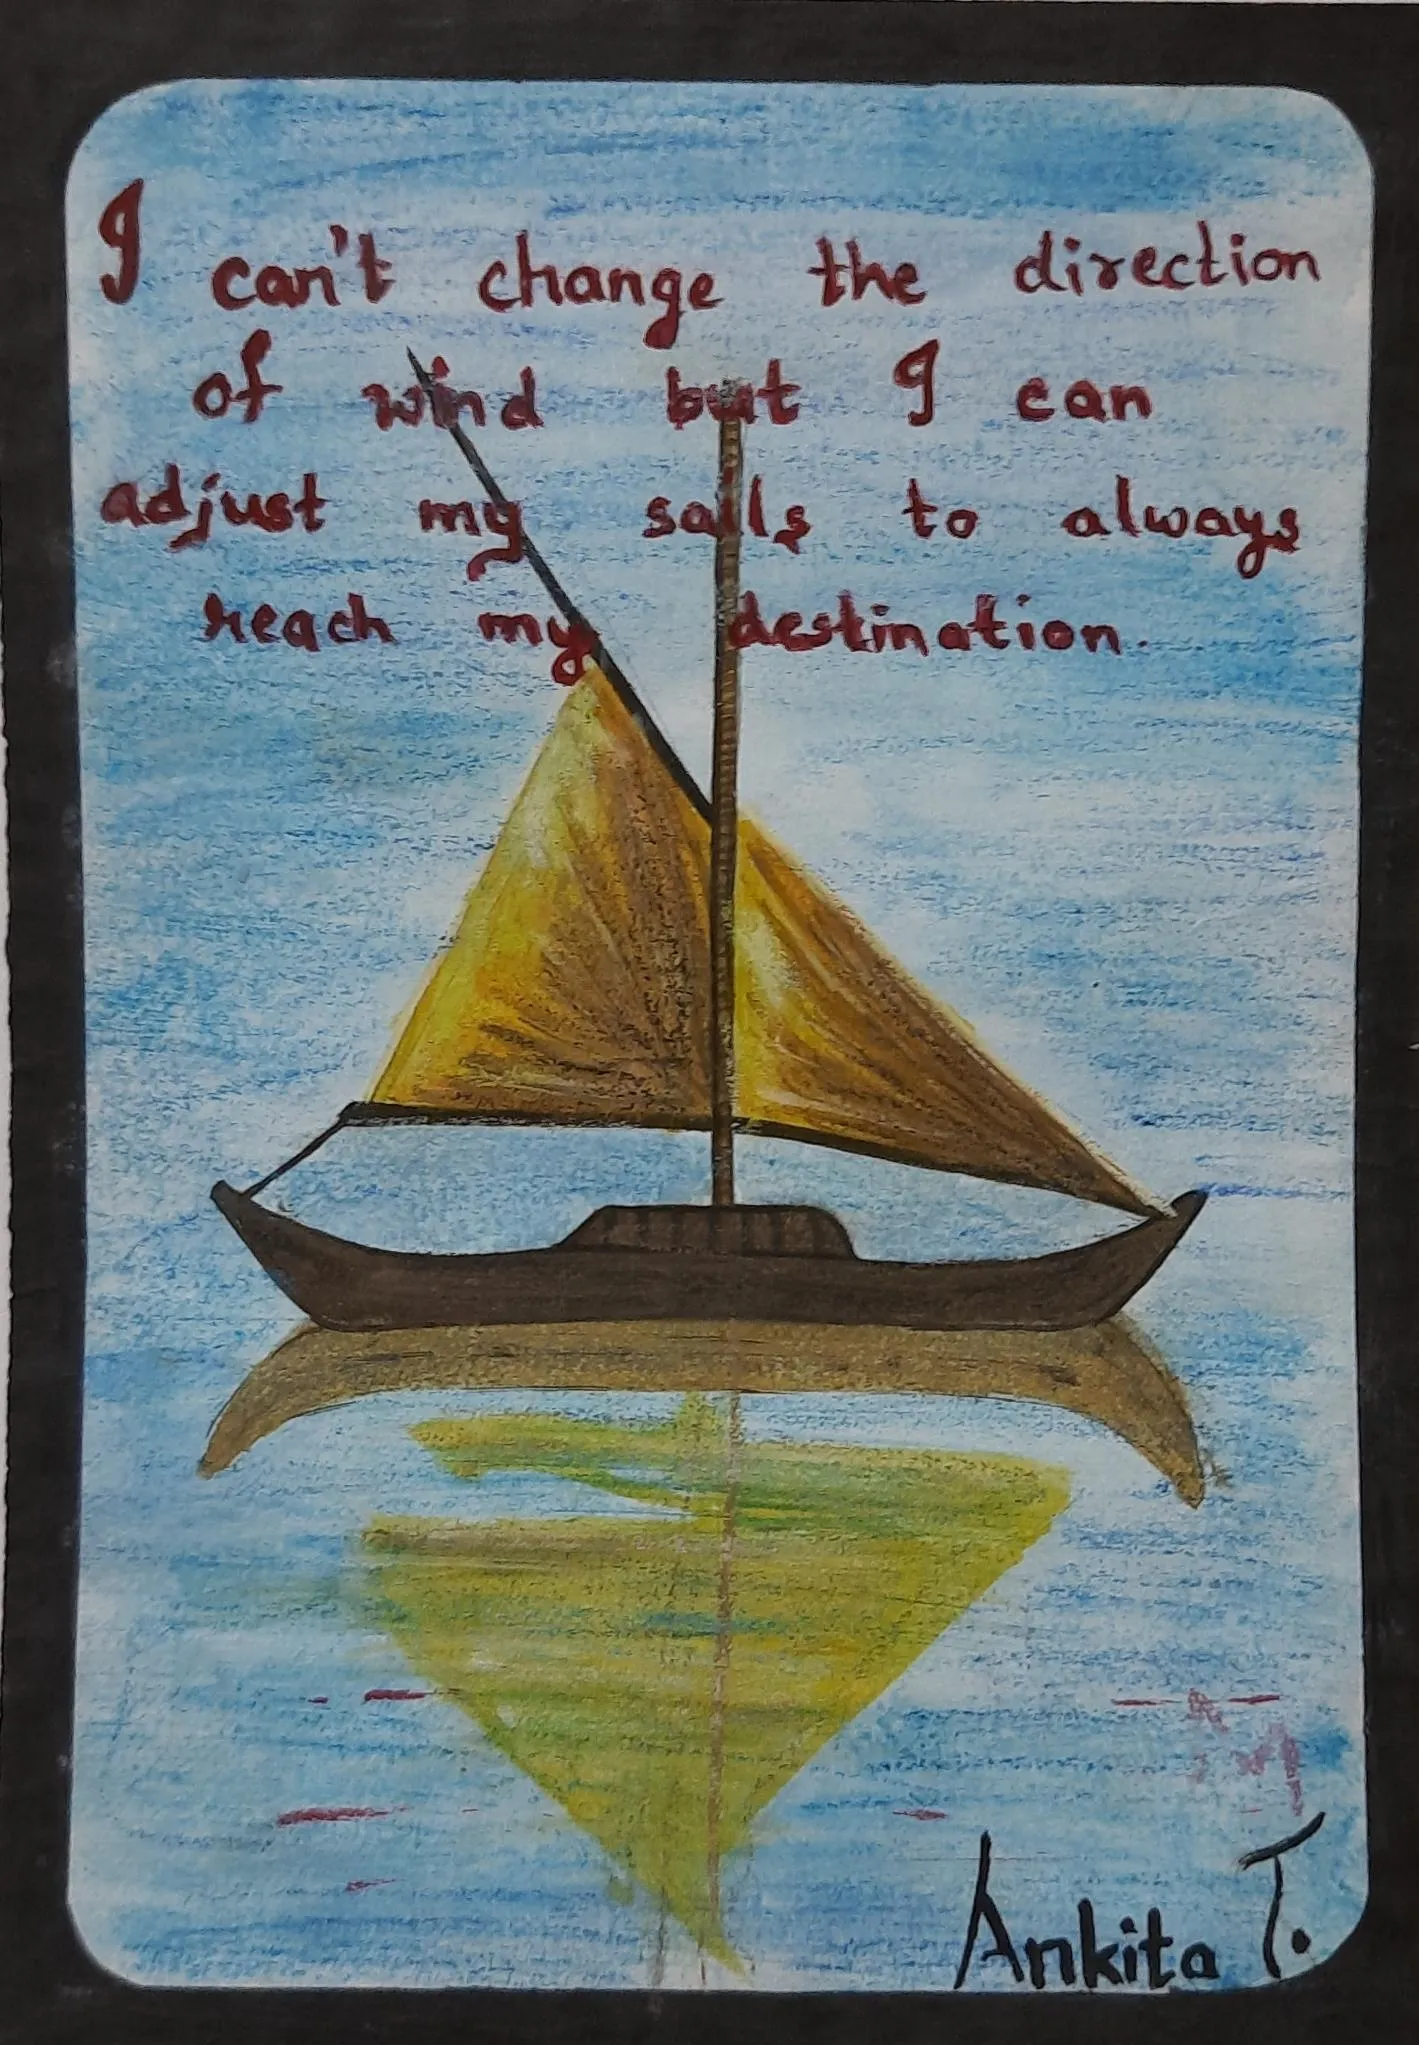 I can't change the direction
of wind but I can
adjust my sails to always
reach my destination.
Ankita T.